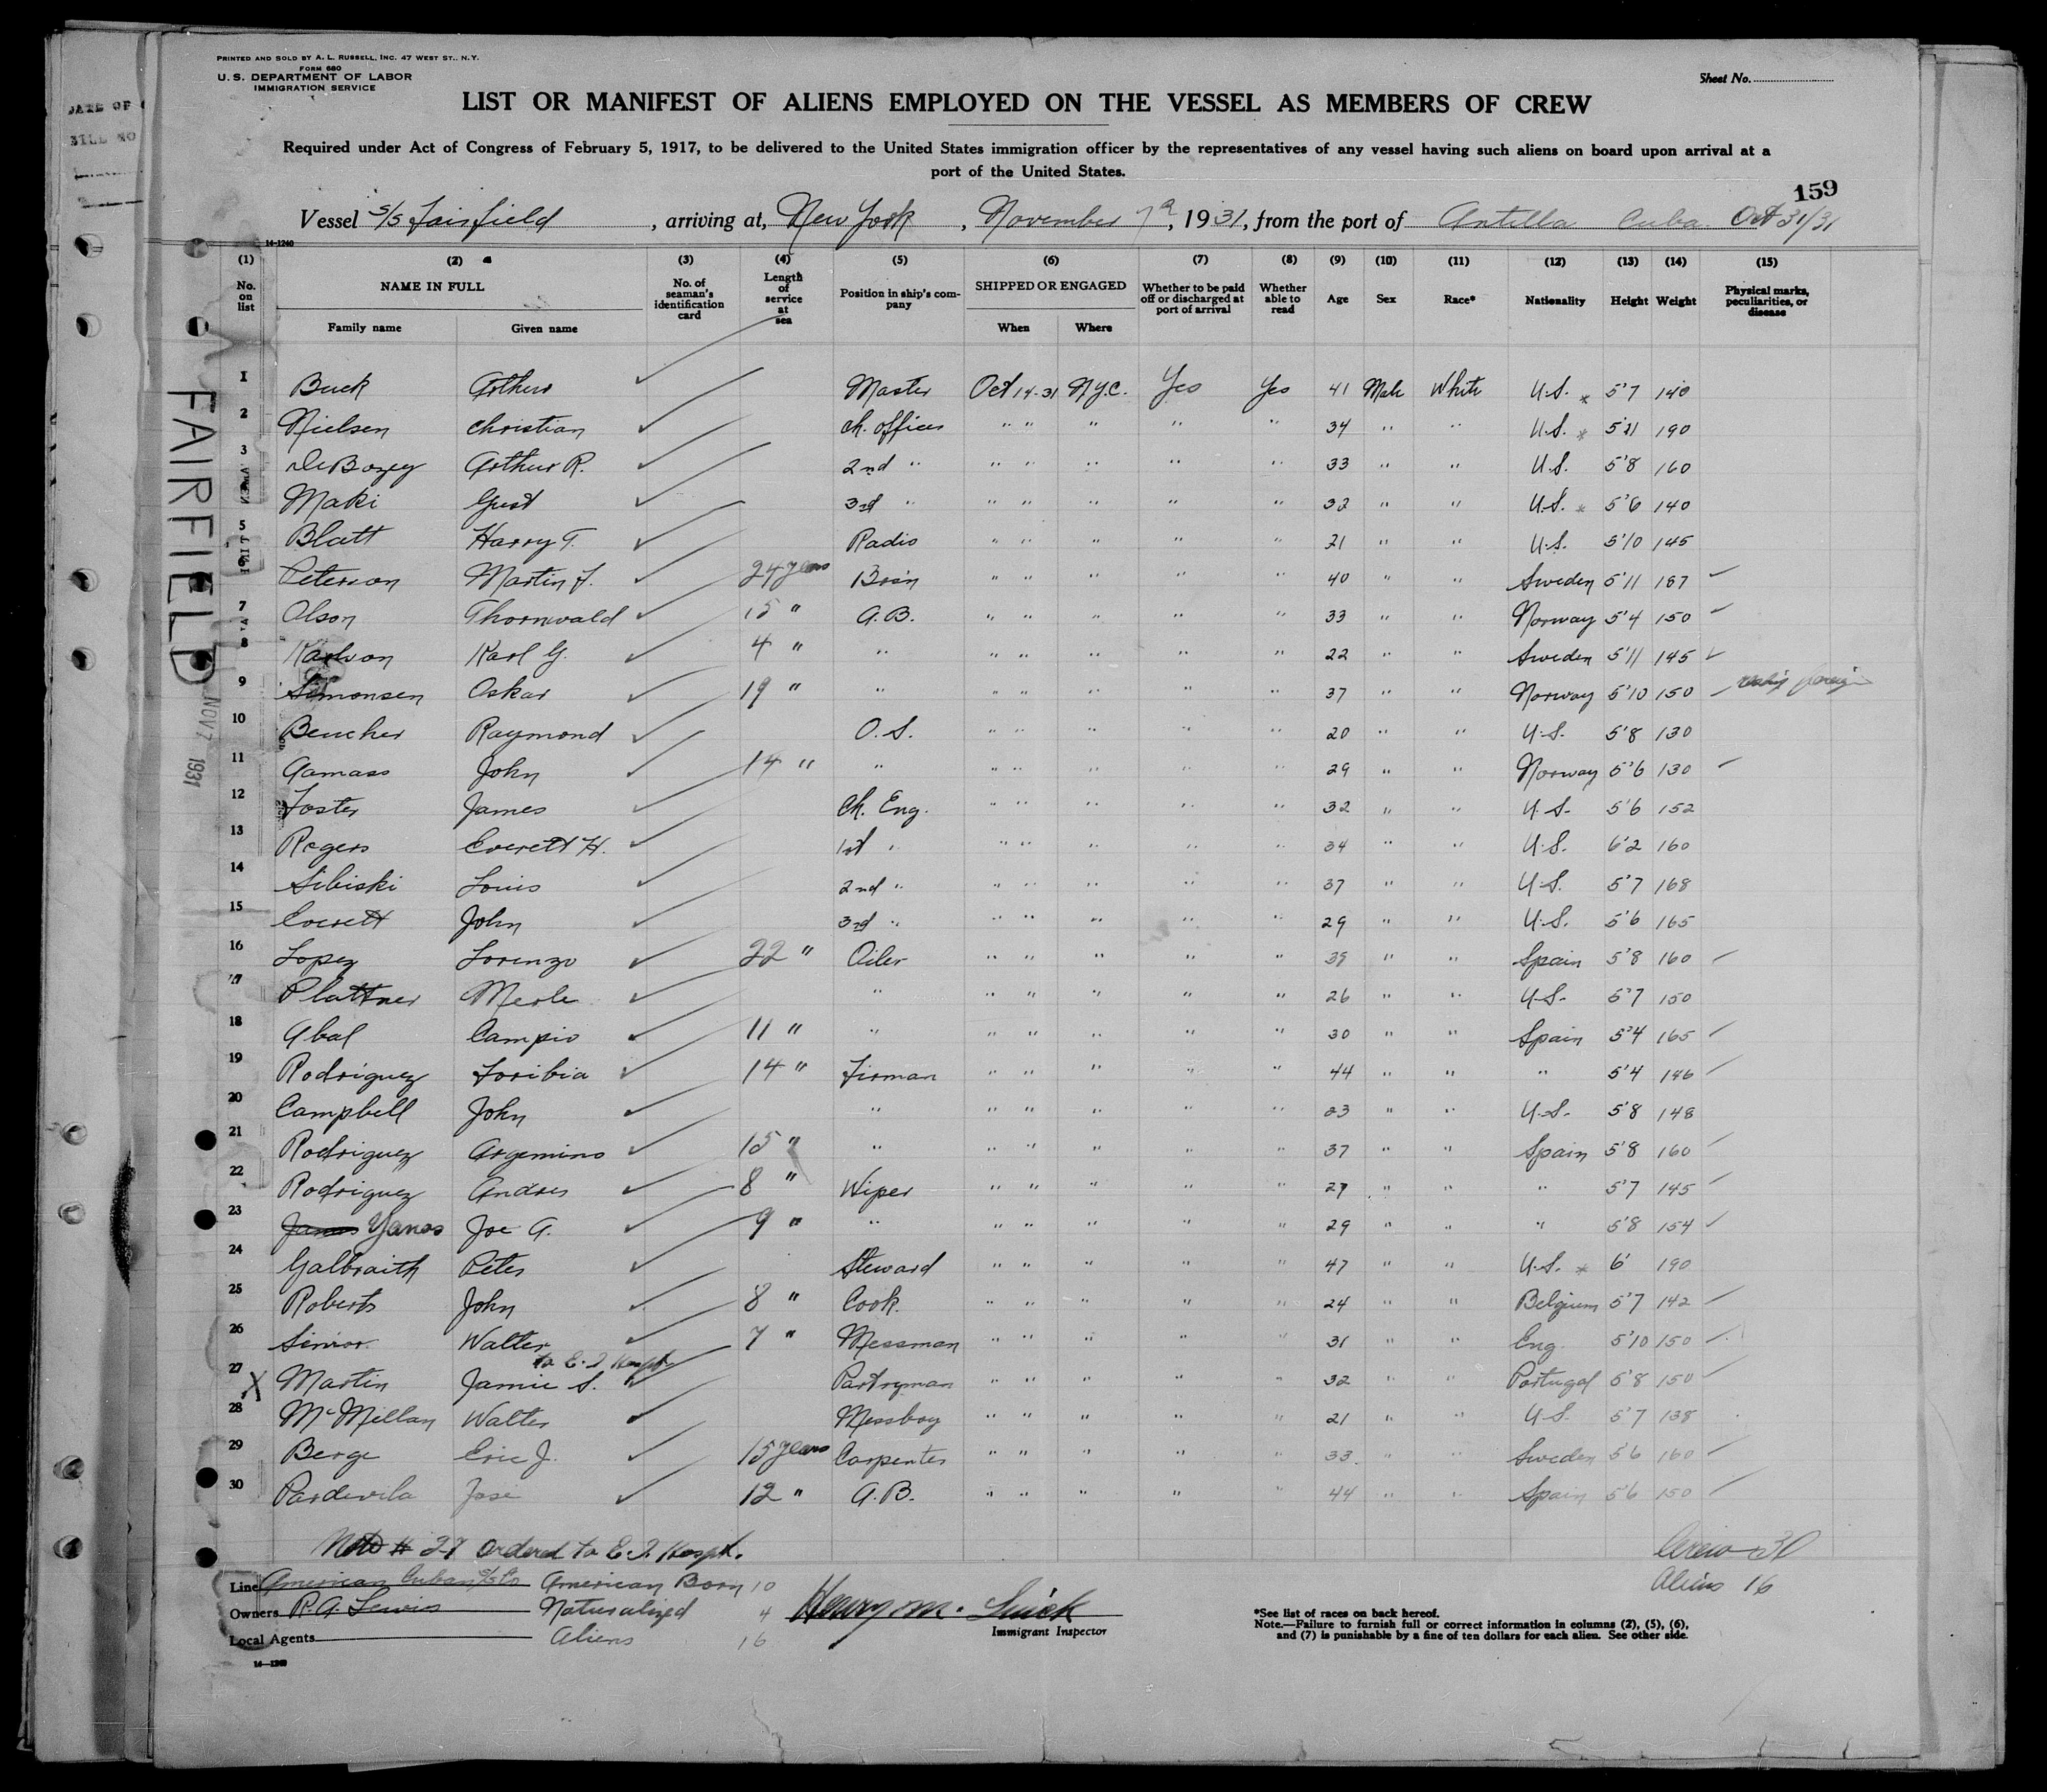 PRINTED AND SOLD BY A. L. RUSSELL, INC. 47 WEST ST., N.Y.
FORM 680
U. S. DEPARTMENT OF LABOR
IMMIGRATION SERVICE
Sheet No.
LIST OR MANIFEST OF ALIENS EMPLOYED ON THE VESSEL AS MEMBERS OF CREW
Required under Act of Congress of February 5, 1917, to be delivered to the United States immigration officer by the representatives of any vessel having such aliens on board upon arrival at a
port of the United States.
159
Vessel S/S Fairfield, arriving at, New York, November 7th, 1931, from the port of Antilla Cuba Oct 31/31
14-1240
(1) (2) (3) (4) (5) (6) (7) (8) (9) (10) (11) (12) (13) (14) (15)
No. on list NAME IN FULL No. of seaman's identification card Length of service at sea Position in ship's company SHIPPED OR ENGAGED Whether to be paid off or discharged at port of arrival Whether able to read Age Sex Race* Nationality Height Weight Physical marks, peculiarities, or disease
Family name Given name When Where
1 Buck Arthur Master Oct 14-31 N.Y.C. Yes Yes 41 Male White U.S. * 5'7 140
2 Nielsen Christian Ch. Officer " " " " " 34 " " U.S. * 5'11 190
3 DeBozey Arthur R. 2nd " " " " " " 33 " " U.S. 5'8 160
Maki Gust 3rd " " " " " " 32 " " U.S. * 5'6 140
5 Blatt Harry T. Radio " " " " " 21 " " U.S. 5'10 145
6 Peterson Martin J. 24 years Bos'n " " " " " 40 " " Sweden 5'11 187
7 Olson Thornwald 15 " A.B. " " " " " 33 " " Norway 5'4 150
8 Karlson Karl G. 4 " " " " " " " 22 " " Sweden 5'11 145
9 Simonsen Oskar 19 " " " " " " " 37 " " Norway 5'10 150
10 Beucher Raymond O.S. " " " " " 20 " " U.S. 5'8 130
11 Aamass John 14 " " " " " " " 29 " " Norway 5'6 130
12 Foster James Ch. Eng. " " " " " 32 " " U.S. 5'6 152
13 Rogers Everett H. 1st " " " " " " 34 " " U.S. 6'2 160
14 Sibiski Louis 2nd " " " " " " 37 " " U.S. 5'7 168
15 Everett John 3rd " " " " " " 29 " " U.S. 5'6 165
16 Lopez Lorenzo 22 " Oiler " " " " " 39 " " Spain 5'8 160
17 Plattner Merle " " " " " " 26 " " U.S. 5'7 150
18 Abal Campio 11 " " " " " " " 30 " " Spain 5'4 165
19 Rodriguez Toribia 14 " Firman " " " " " 44 " " " 5'4 146
20 Campbell John " " " " " " 23 " " U.S. 5'8 148
21 Rodriguez Argemino 15 " " " " " " " 37 " " Spain 5'8 160
22 Rodriguez Andres 8 " Wiper " " " " " 27 " " " 5'7 145
23 Yanos Joe A. 9 " " " " " " " 29 " " " 5'8 154
24 Galbraith Peter Steward " " " " " 47 " " U.S. * 6' 190
25 Roberts John 8 " Cook " " " " " 24 " " Belgium 5'7 142
26 Senior Walter 7 " Messman " " " " " 31 " " Eng. 5'10 150
to E.I. Hospt.
27 X Martin Jamie S. Pantryman " " " " " 32 " " Portugal 5'8 150
28 McMillan Walter Messboy " " " " " 21 " " U.S. 5'7 138
29 Berge Eric J. 15 years Carpenter " " " " " 33 " " Sweden 5'6 160
30 Pardevila Jose 12 " A.B. " " " " " 44 " " Spain 5'6 150
Note # 27 Ordered to E.I. Hospt.
Crew 30
Aliens 16
Line American Cuban S/S Co American Born 10
Owners R.A. Lewis Naturalized 4
Local Agents Aliens 16
Henry M.
Immigrant Inspector
*See list of races on back hereof.
Note.—Failure to furnish full or correct information in columns (2), (5), (6),
and (7) is punishable by a fine of ten dollars for each alien. See other side.
FAIRFIELD
NOV 7 1931